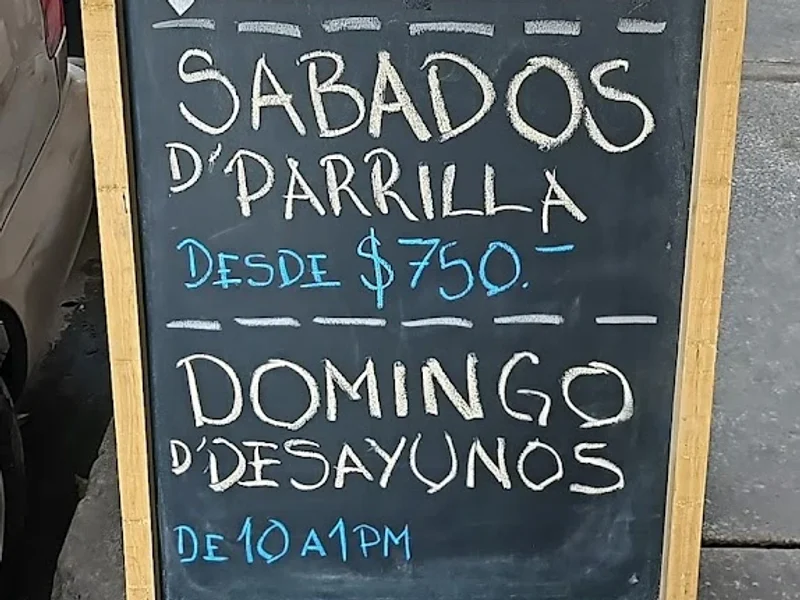 SABADOS
D'PARRILLA
DESDE $750.-
DOMINGO
D'DESAYUNOS
DE 10 A 1 PM